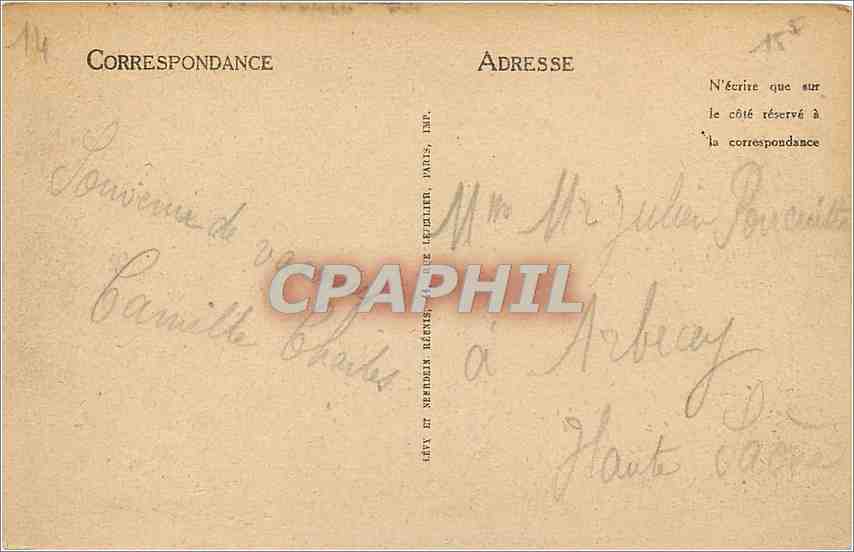 14
15
CORRESPONDANCE
ADRESSE
N'écrire que sur
le côté réservé à
la correspondance
Souvenir de
Camille Charles
LÉVY ET NEURDEIN RÉUNIS, 44, RUE LETELLIER, PARIS, IMP.
CPAPHIL
Mr Julien
à Arbecey
Haute Saône